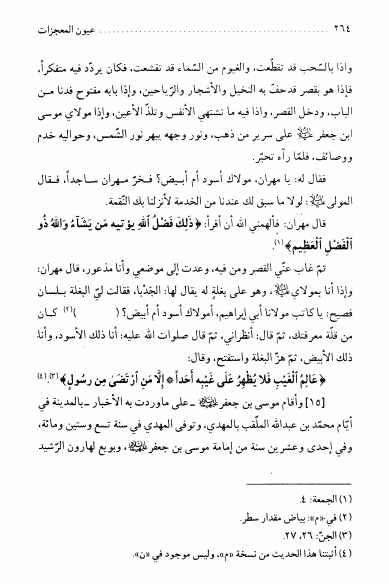 ٢٦٤ ........................................ عيون المعجزات
واذا بالسّحب قد تقطّعت، والغيوم من السّماء قد تقشعت، فكان يردّد فيه متفكراً،
فإذا هو بقصر قدحفّ به النخيل والأشجار والرّياحين، وإذا بابه مفتوح فدنا مـن
الباب، ودخل القصر، واذا فيه ما تشتهي الأنفس وتلذّ الأعين، وإذا مولاي موسى
ابن جعفر ﷺ على سرير من ذهب، ونور وجهه يبهر نور الشّمس، وحواليه خدم
ووصائف، فلمّا رآه تحيّر.
فقال له: يا مهران، مولاك أسود أم أبيض؟ فـخرّ مـهران سـاجداً، فـقال
المولى ﷺ: لولا ما سبق لك عندنا من الخدمة لأنزلنا بك النّقمة.
قال مهران: فألهمني الله أن أقرأ: ﴿ذَلِكَ فَضْلُ اللهِ يُؤتيه مَن يَشَآءُ وَاللهُ ذُو
الْفَضْلِ الْعَظِيمِ﴾(١).
ثمّ غاب عنّي القصر ومن فيه، وعدت إلى موضعي وأنا مذعور، قال مهران:
وإذا أنا بمولاي ﷺ، وهو على بغلةٍ له يقال لها: الجَدْبا، فقالت ليّ البغلة بـلسان
فصيح: يا كاتب مولانا أبي إبراهيم، أمولاك أسود أم أبيض؟ ( )(٢) كـان
من قلّة معرفتك، ثمّ قال: أنظراني، ثمّ قال صلوات الله عليه: أنا ذلك الأسود، وأنا
ذلك الأبيض، ثمّ هزّ البغلة واستفتح، وقال:
﴿عَالِمُ الْغَيْبِ فَلا يُظْهِرُ عَلَى غَيْبِهِ أَحَداً * إلَّا مَنِ ارْتَضَىٰ مِن رسولٍ﴾(٣).(٤)
[١٥] وأقام موسى بن جعفر ﷺ ـ على ماوردت به الأخبار ـ بالمدينة في
أيّام محمّد بن عبدالله الملّقب بالمهدي، وتوفى المهدي في سنة تسع وستين ومائة،
وفي إحدى وعشرين سنة من إمامة موسى بن جعفر ﷺ، وبويع لهارون الرّشيد
(١) الجمعة: ٤.
(٢) في«م»: بياض مقدار سطر.
(٣) الجنّ: ٢٦، ٢٧.
(٤) أثبتنا هذا الحديث من نسخة «م»، وليس موجود في «ن».